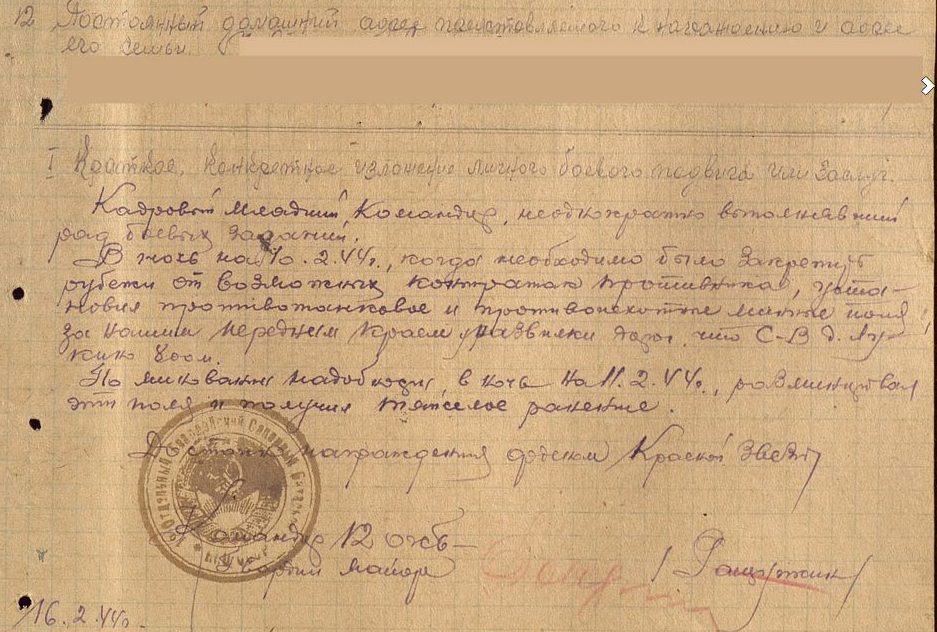 12 Постоянный домашний адрес представляемого к награждению и адрес
его семьи
I Краткое, конкретное изложение личного боевого подвига или заслуг.
Кадровый младший командир, неоднократно выполнявший
ряд боевых заданий.
В ночь на 10.2.44г., когда необходимо было закрепить
рубежи от возможных контратак противника, уста-
новил противотанковое и противопехотные минные поля
за нашим передним краем у развилки дорог, что С-В д.
По миновании надобности, в ночь на 11.2.44г., разминировал
эти поля и получил тяжелое ранение.
Достоин награждения орденом Красной Звезды
Отдельный Гвардейский Саперный
Командир 12
Гвардии майор
16.2.44г.